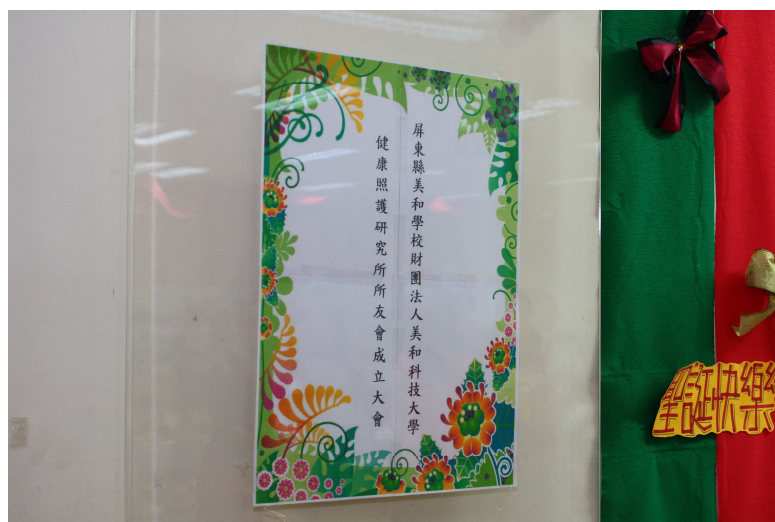 屏東縣美和學校財團法人美和科技大學
健康照護研究所所友會成立大會
聖誕快樂